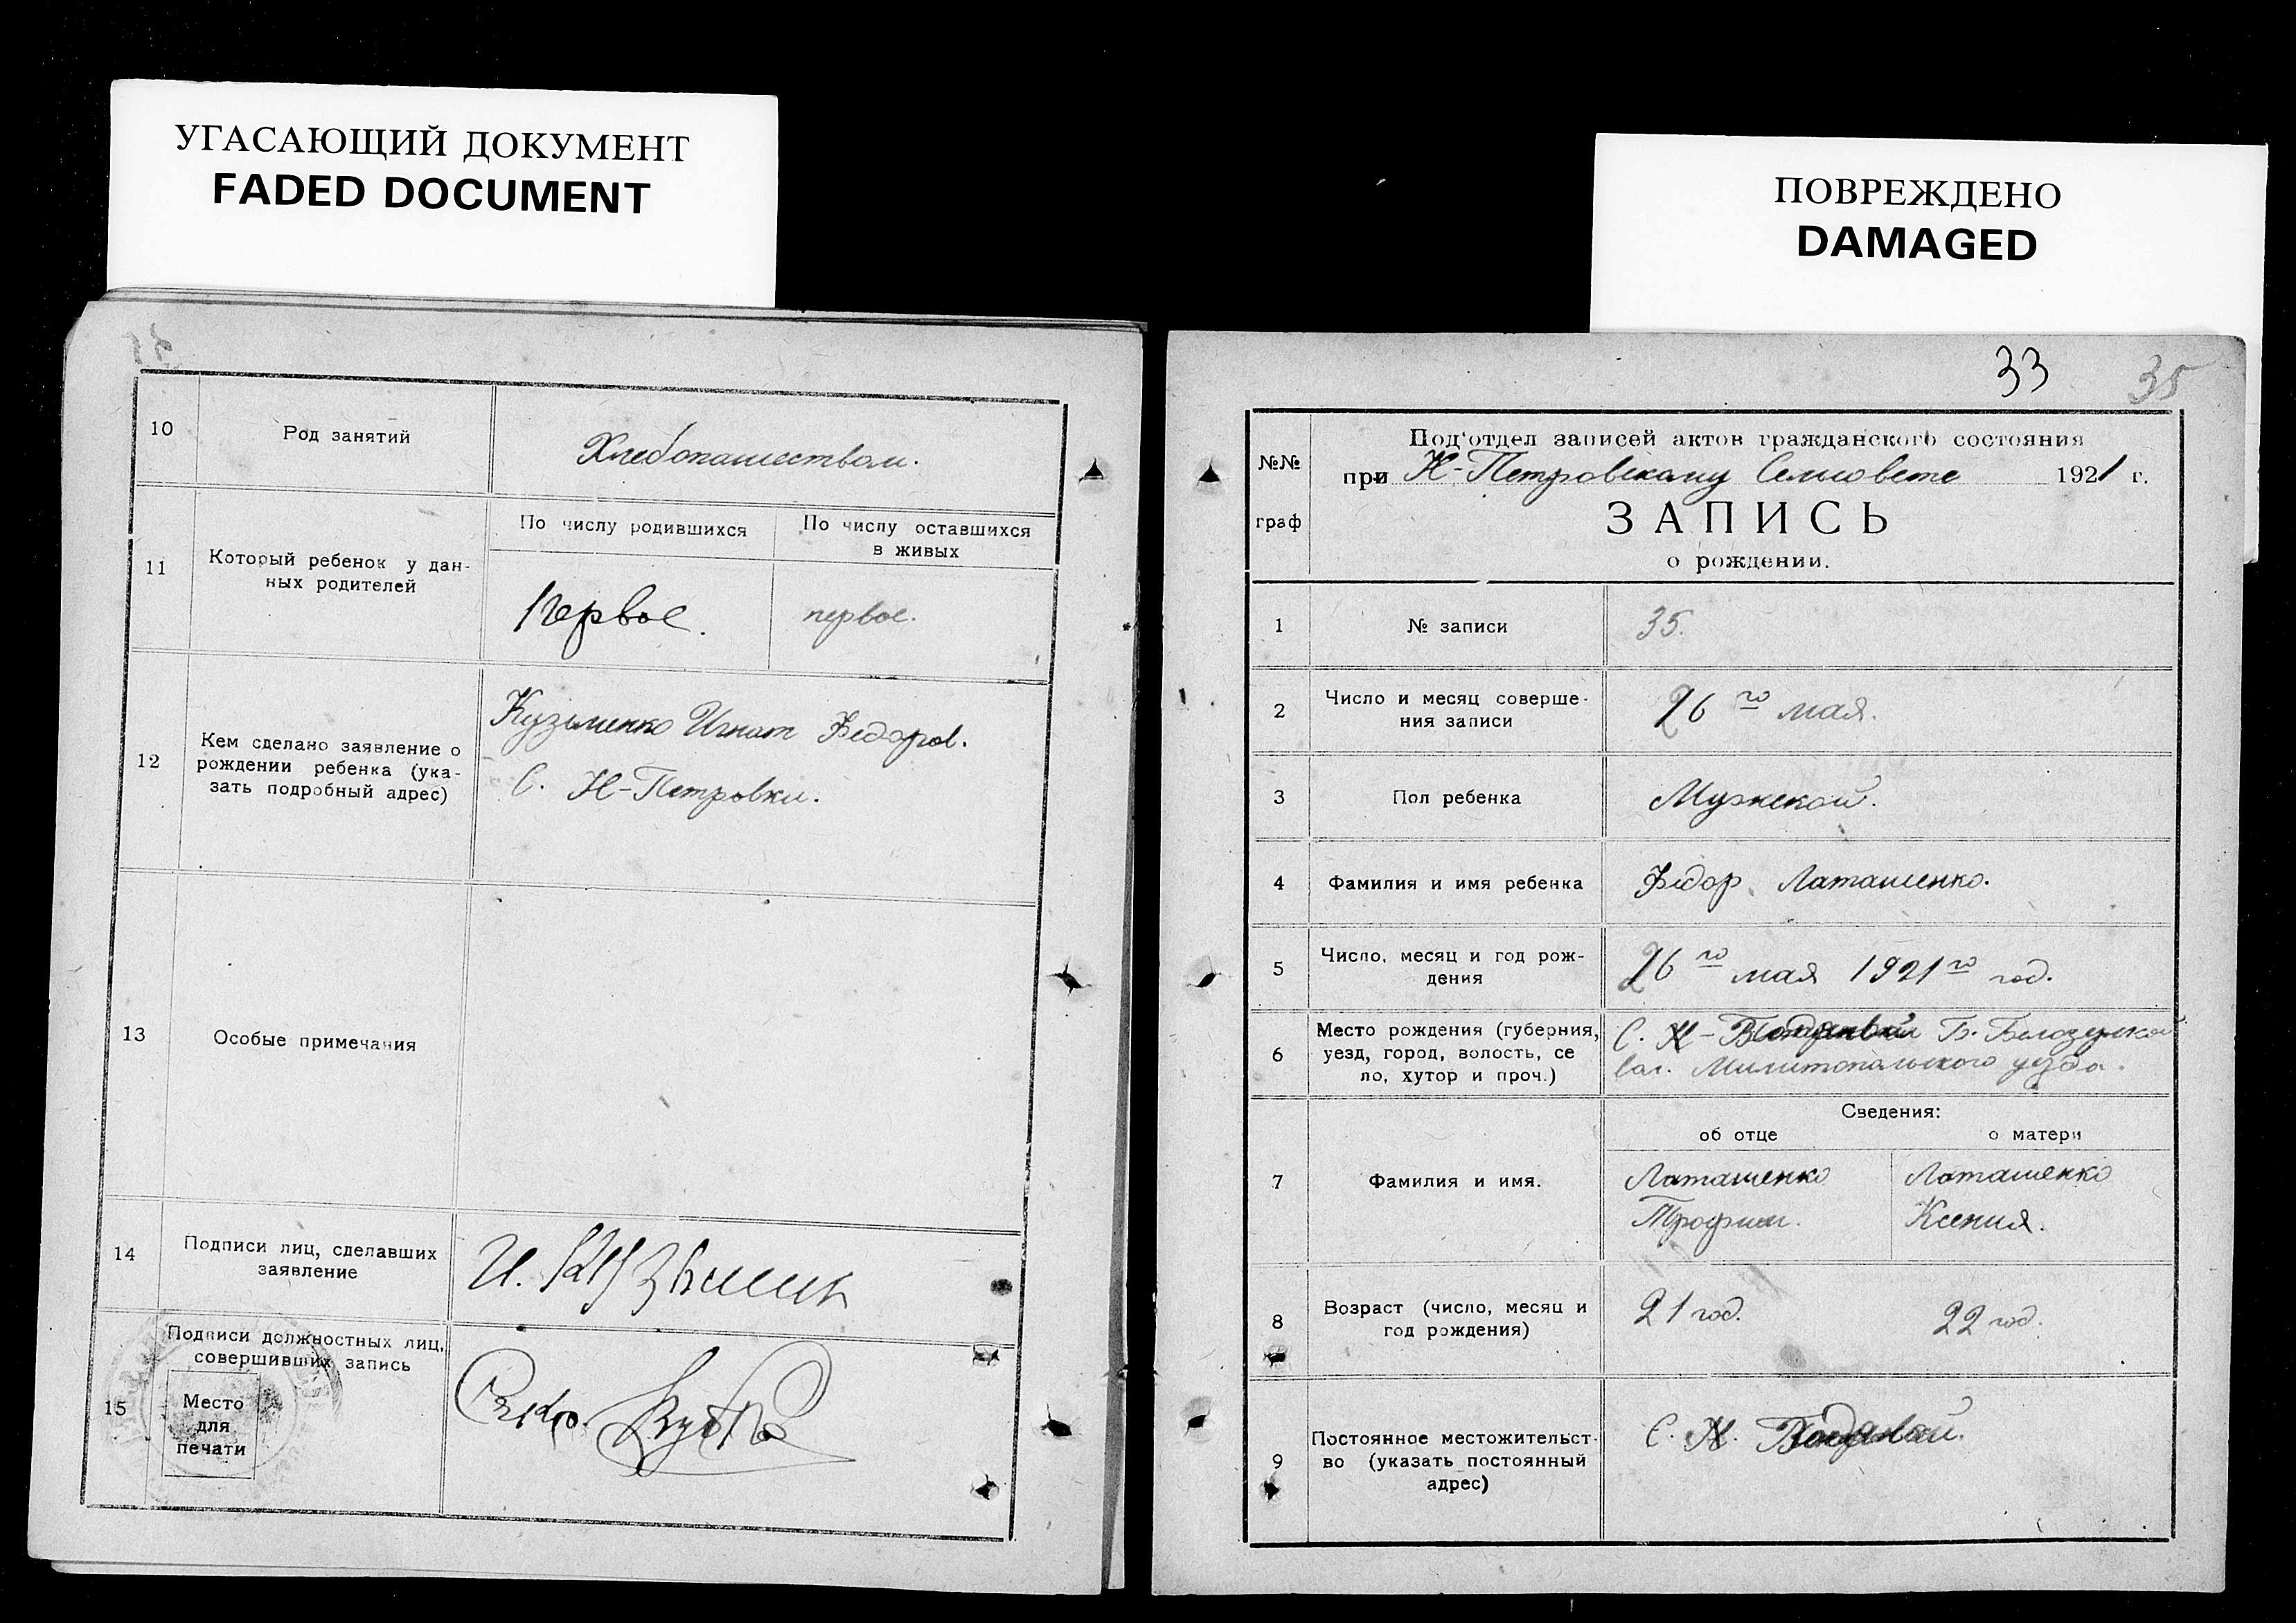 УГАСАЮЩИЙ ДОКУМЕНТ
FADED DOCUMENT
10
Род занятий
Хлебопашеством.
11
Который ребенок у дан-
ных родителей
По числу родившихся
По числу оставшихся
в живых
Первое.
первое.
12
Кем сделано заявление о
рождении ребенка (ука-
зать подробный адрес)
Кузьменко Игнат Федоров.
С. Н-Петровки.
13
Особые примечания
14
Подписи лиц, сделавших
заявление
И.
15
Подписи должностных лиц,
совершивших запись
Место
для
печати
ПОВРЕЖДЕНО
DAMAGED
33
35
№№
граф
Под'отдел записей актов гражданского состояния
при Н-Петровскому Сельсовете 1921 г.
ЗАПИСЬ
о рождении.
1
№ записи
35.
2
Число и месяц соверше-
ния записи
26 го мая.
3
Пол ребенка
Мужской.
4
Фамилия и имя ребенка
Федор Латашенко.
5
Число, месяц и год рож-
дения
26 го мая 1921 го год.
6
Место рождения (губерния,
уезд, город, волость, се
ло, хутор и проч.)
С. Б. Белозерской
вол. Милитопольского уезда.
Сведения:
об отце
о матери
7
Фамилия и имя.
Латашенко
Трофим.
Латашенко
Ксения.
8
Возраст (число, месяц и
год рождения)
21 год.
22 год.
9
Постоянное местожительст-
во (указать постоянный
адрес)
С.